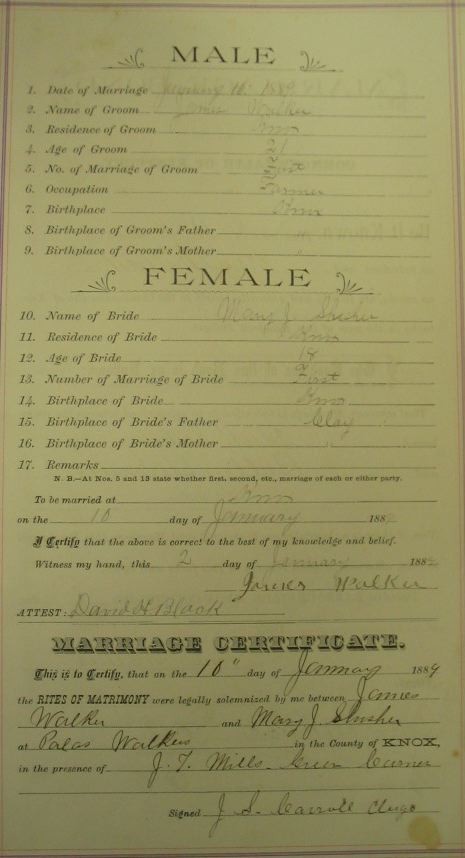 MALE
1. Date of Marriage January 10" 1889
2. Name of Groom James Walker
3. Residence of Groom Knox
4. Age of Groom 21
5. No. of Marriage of Groom First
6. Occupation Farmer
7. Birthplace Knox
8. Birthplace of Groom's Father "
9. Birthplace of Groom's Mother "
FEMALE
10. Name of Bride Mary J. Slusher
11. Residence of Bride Knox
12. Age of Bride 18
13. Number of Marriage of Bride First
14. Birthplace of Bride Knox
15. Birthplace of Bride's Father Clay
16. Birthplace of Bride's Mother "
17. Remarks
N. B.—At Nos. 5 and 13 state whether first, second, etc., marriage of each or either party.
To be married at Knox
on the 10 day of January 1889
I Certify that the above is correct to the best of my knowledge and belief.
Witness my hand, this 2 day of January 1889
James Walker
ATTEST: David H Black
MARRIAGE CERTIFICATE.
This is to Certify, that on the 10" day of January 1889
the RITES OF MATRIMONY were legally solemnized by me between James
Walker and Mary J Slusher
at Walkers in the County of KNOX,
in the presence of J. T. Mills Green
Signed J. S. Carroll